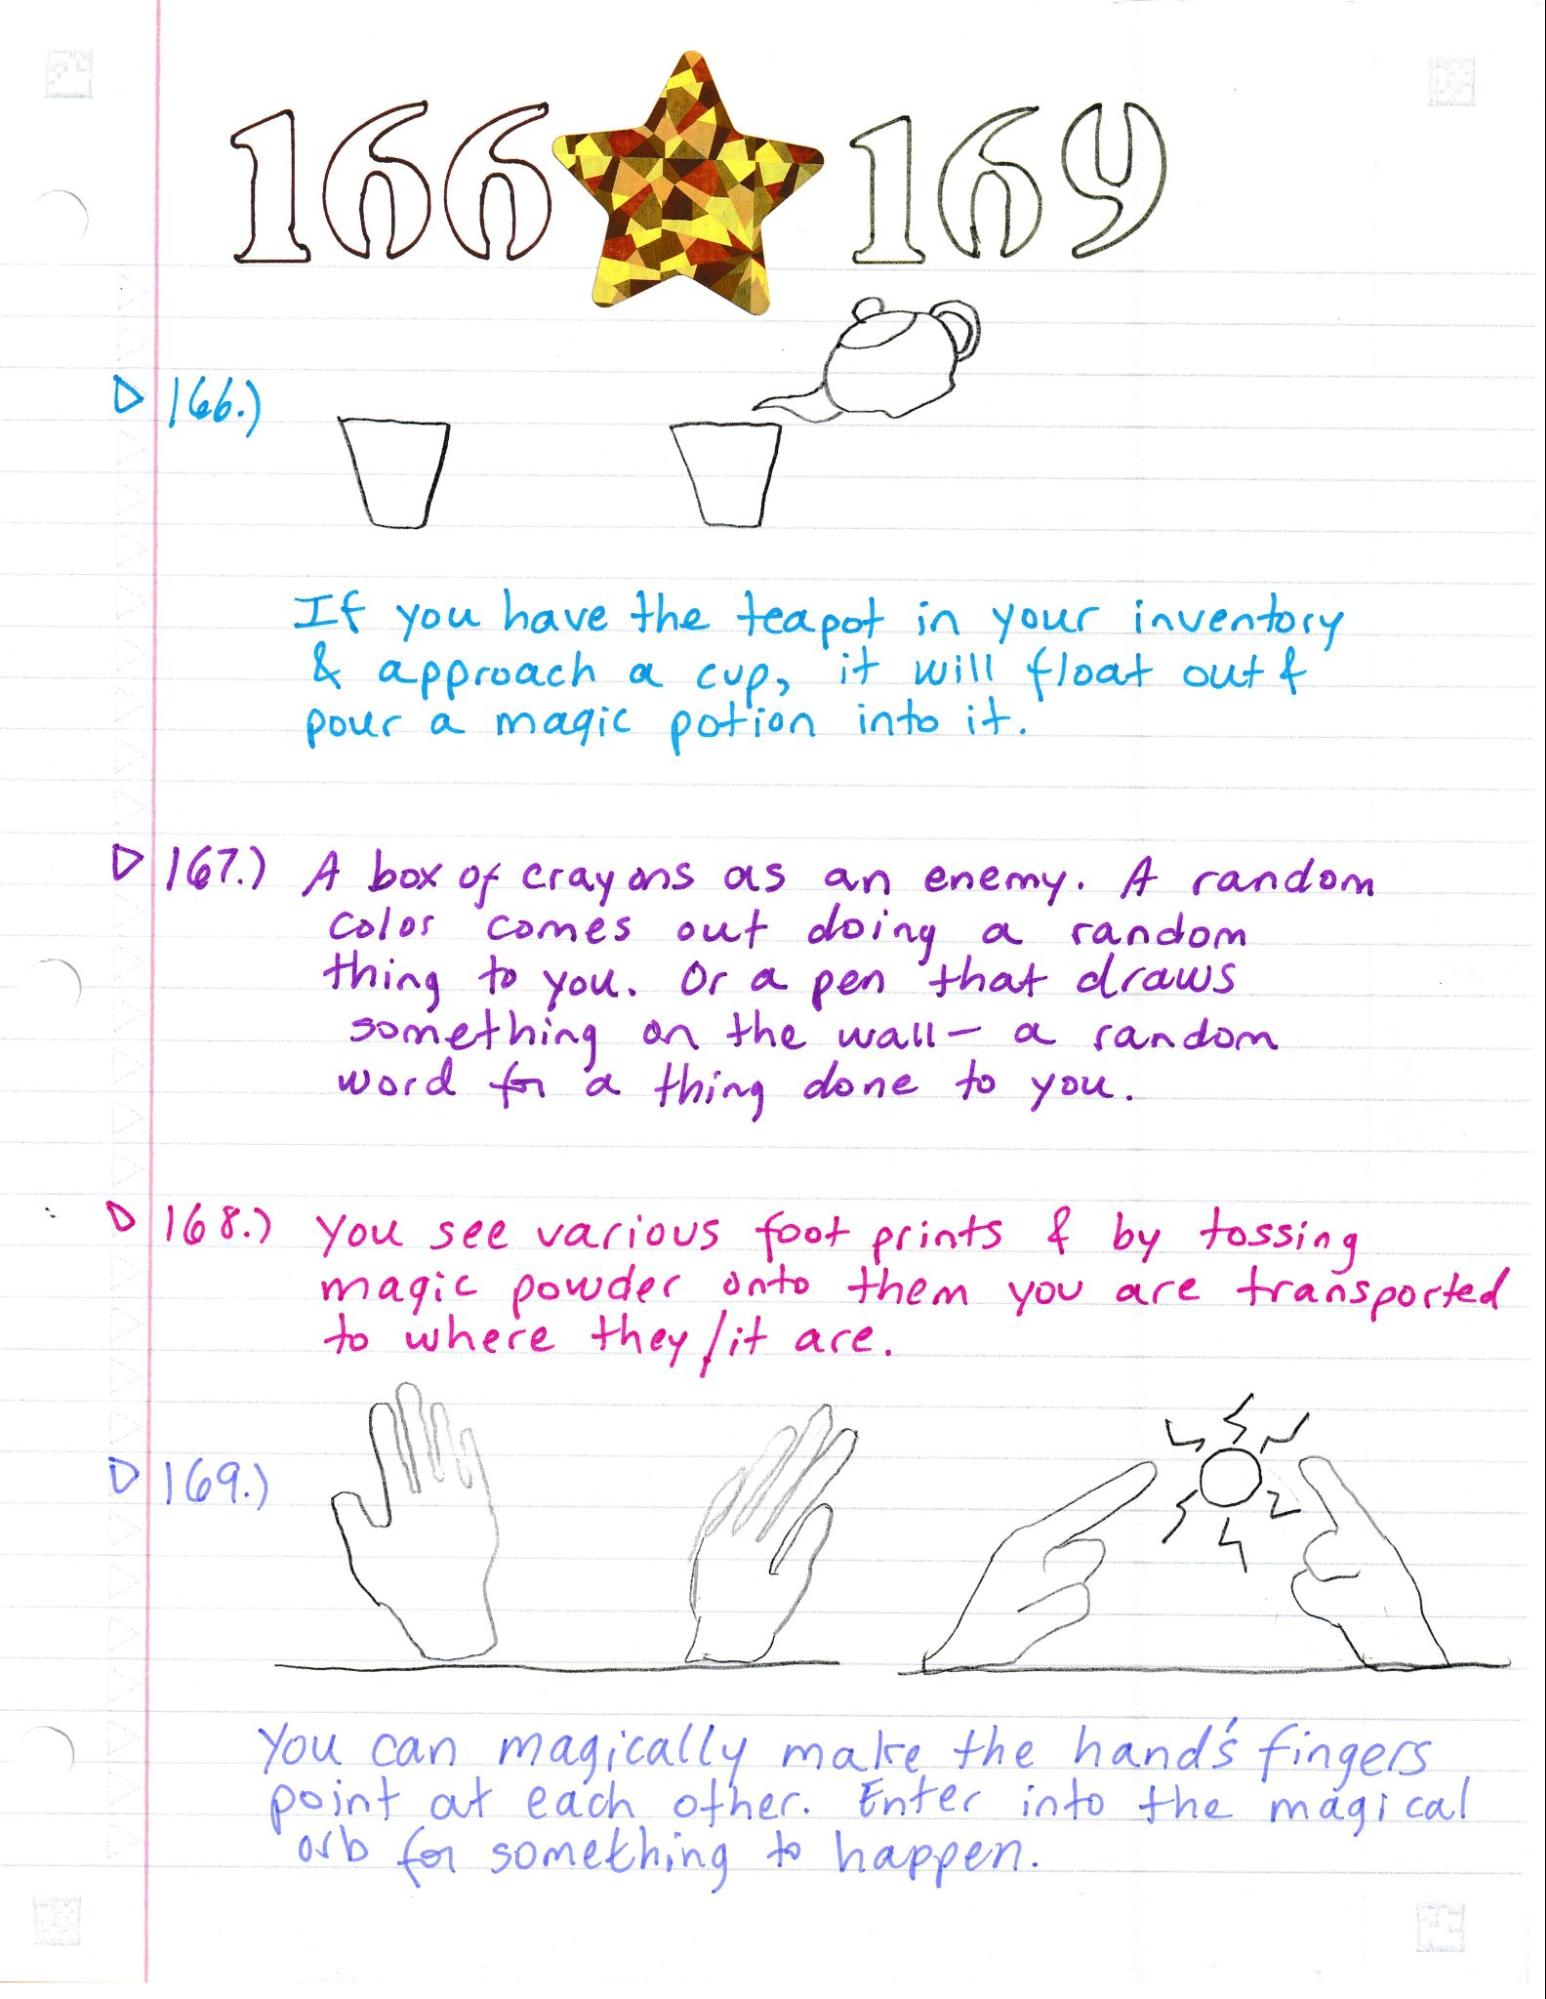 166 169
166.)
If you have the teapot in your inventory
& approach a cup, it will float out &
pour a magic potion into it.
167.) A box of crayons as an enemy. A random
color comes out doing a random
thing to you. Or a pen that draws
something on the wall – a random
word for a thing done to you.
168.) You see various foot prints & by tossing
magic powder onto them you are transported
to where they/it are.
169.)
You can magically make the hand's fingers
point at each other. Enter into the magical
orb for something to happen.